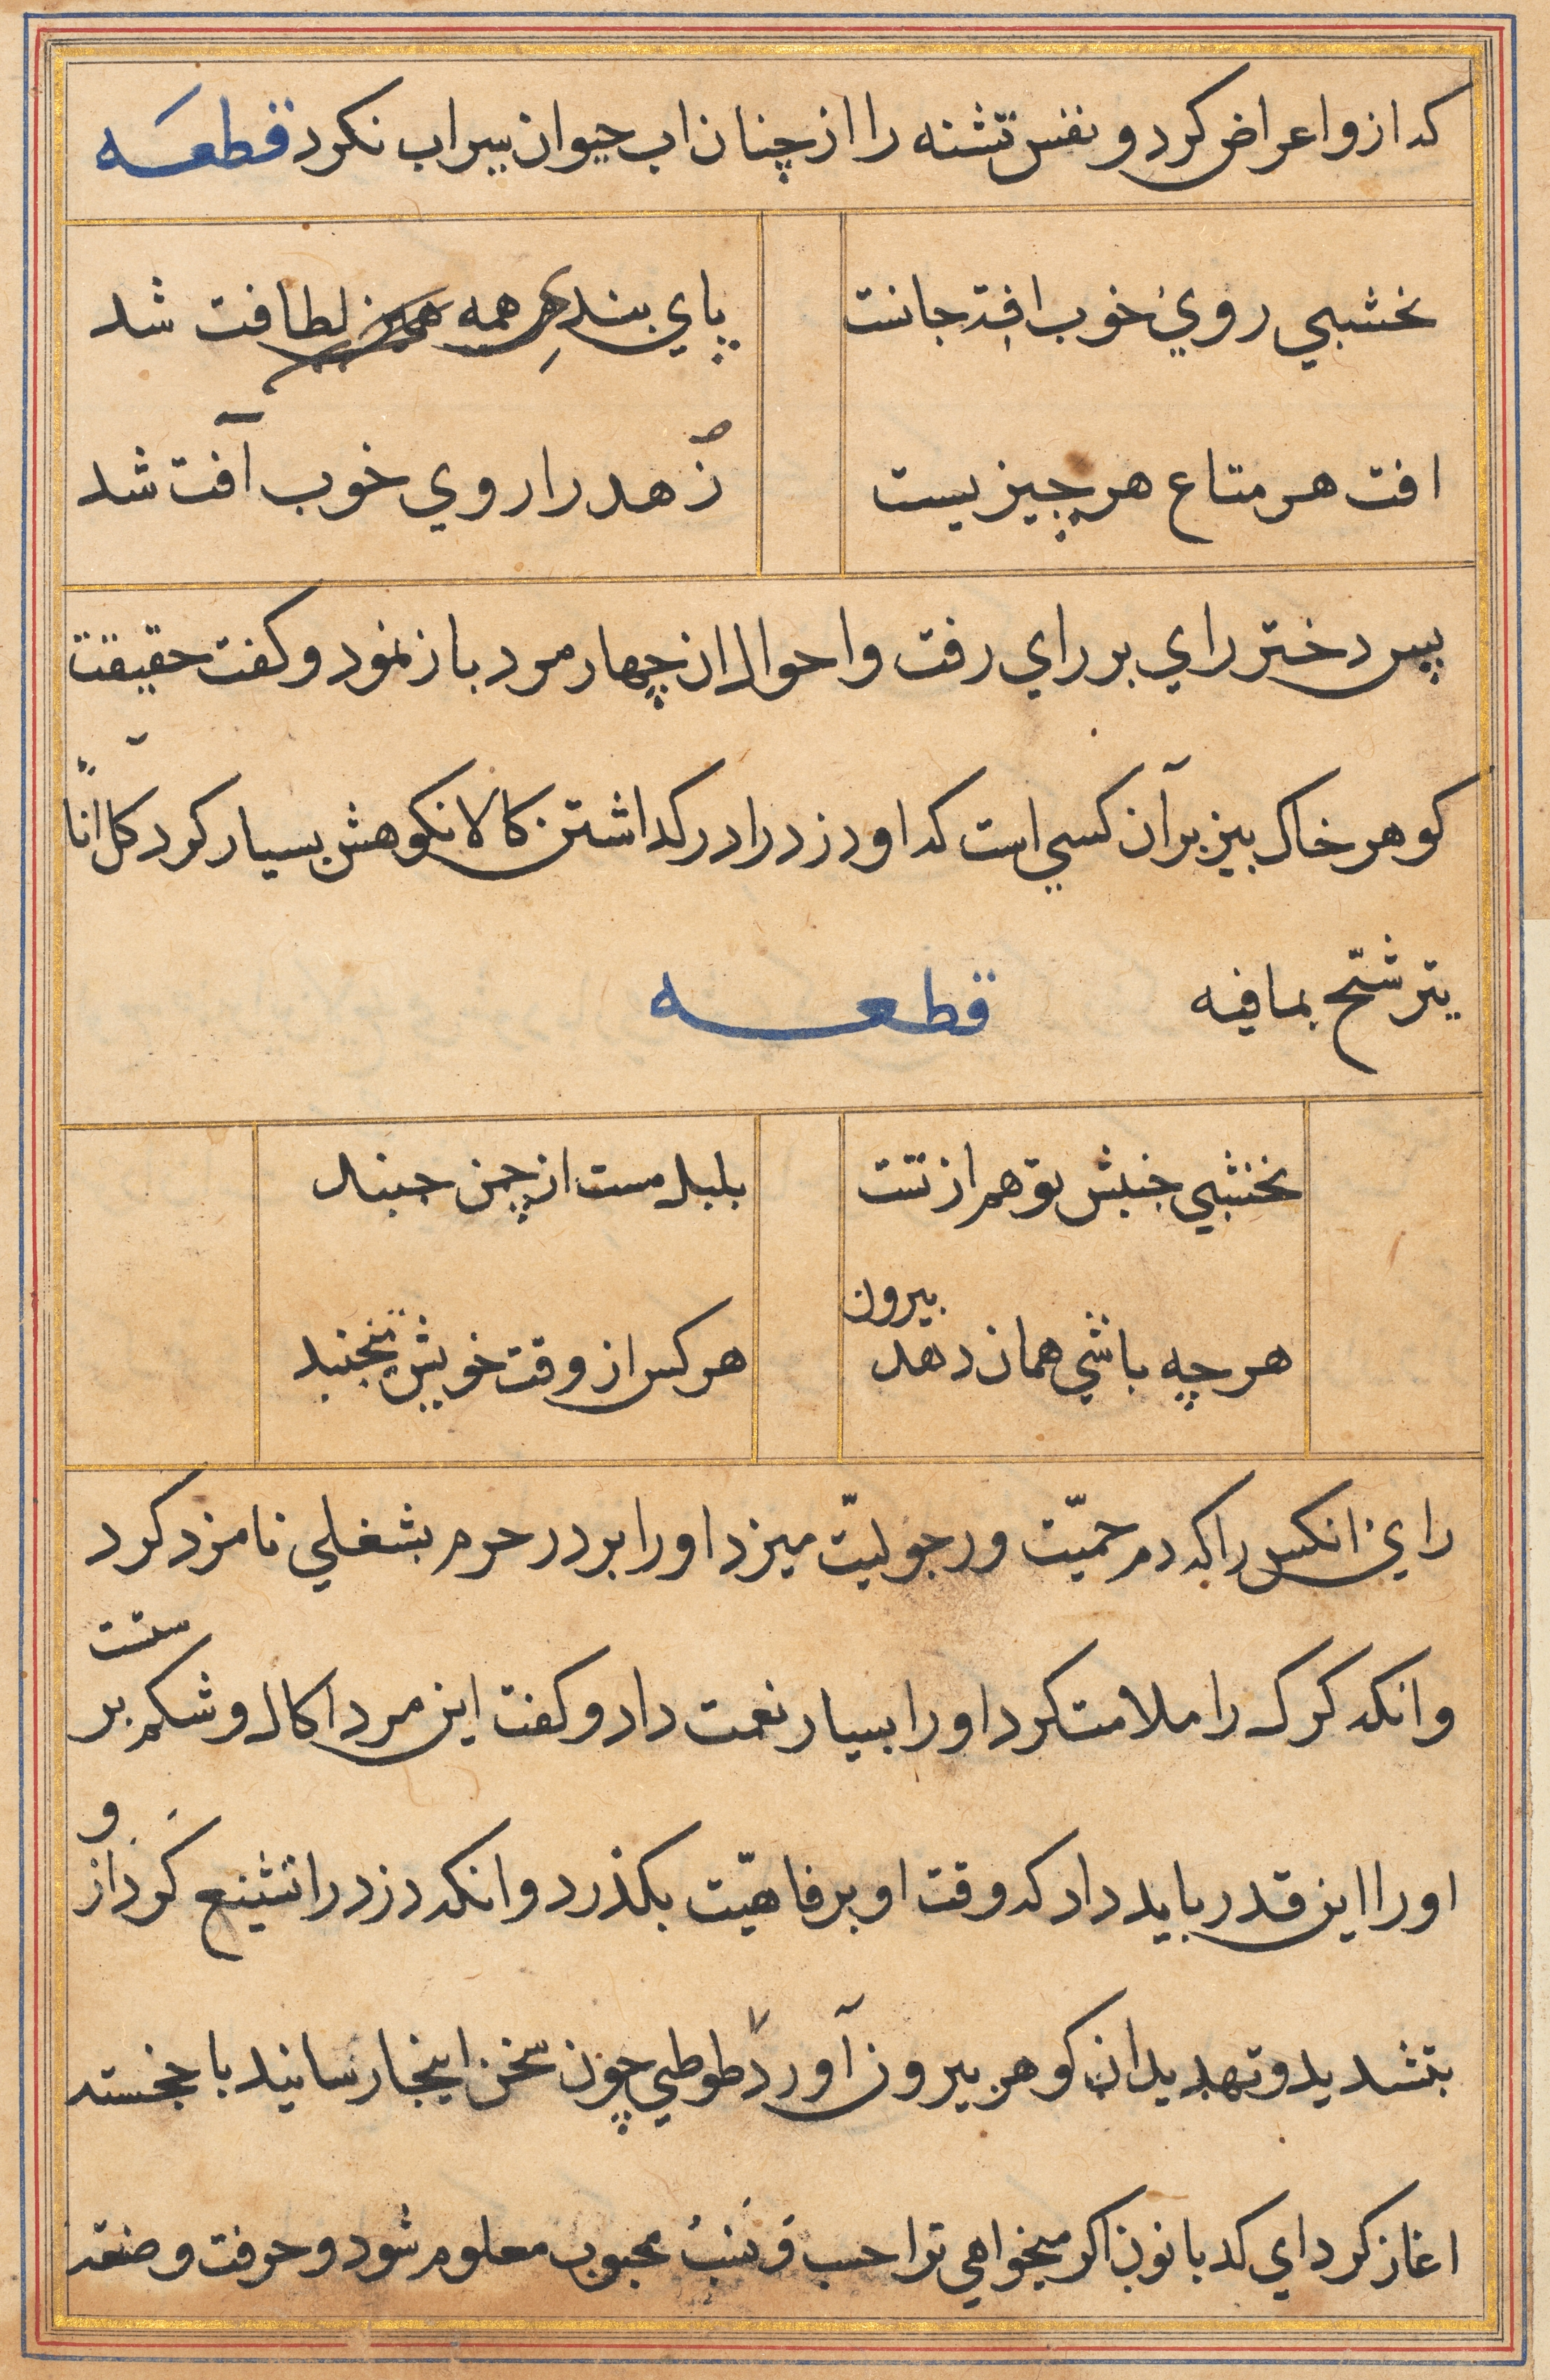 که ازو اعراض کرد و نفس تشنه را از چنان اب حیوان سیراب نکرد قطعه
نخشبی روی خوب افت جانست
پای بندی هر همه لطافت شد
افت هر متاع هر چیزیست
زهد را روی خوب آفت شد
پس دختر رای بر رای رفت و احوال از چهار مرد باز نمود و کفت حقیقت
کوهر خاک بیز بر آن کسی است که او دزد را در کداشتن کالا نکوهش بسیار کرد کل انا
یترشّح بما فیه قطعه
نخشبی جنبش تو هم از تست
بلبل مست از چمن جنبد
هر چه باشی همان دهد بیرون
هر کس از وقت خویش جنبد
رای انکس را که دم حمیّت و رجولیّت میزد او را بر در حرم بشغلی نامزد کرد
وانکه کرک را ملامت کرد او را بسیار نعمت داد و کفت این مرد اکال و شکم بر ستست
او را این قدر باید داد که وقت او برفاهیّت بکذرد وانکه دزد را تشنیع کرد از و
بتشدید و تهدید ان کوهر بیرون آورد طوطی چون سخن اینجا رسانید با خجسته
اغاز کرد ای کدبانون اکر میخواهی ترا حسب و نسب محبوب معلوم شود و حرفت و صنعت